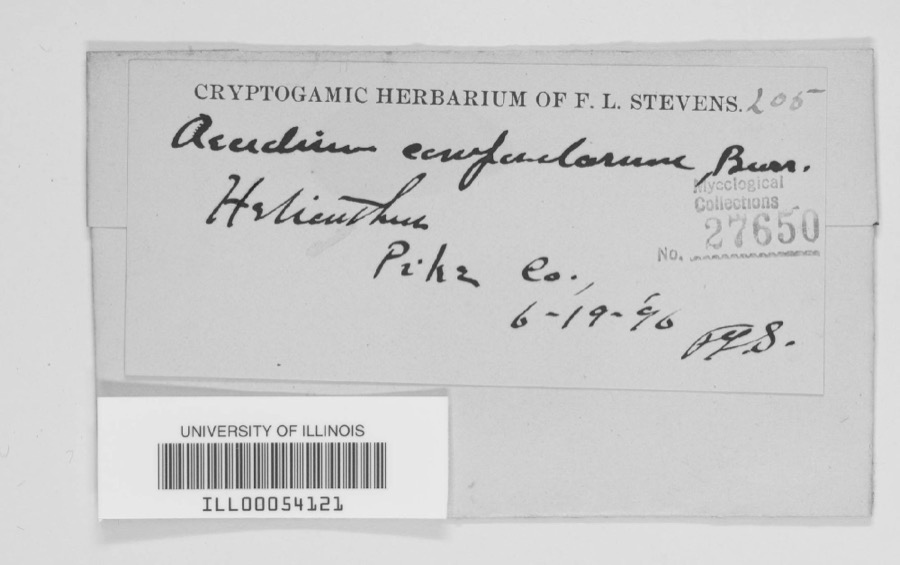 CRYPTOGAMIC HERBARIUM OF F. L. STEVENS. 205
Aecidium compositarum, Burr.
Mycological
Collections
No. 27650
Helianthus
Pike Co.,
6-19-'96
F.L.S.
UNIVERSITY OF ILLINOIS
ILL00054121